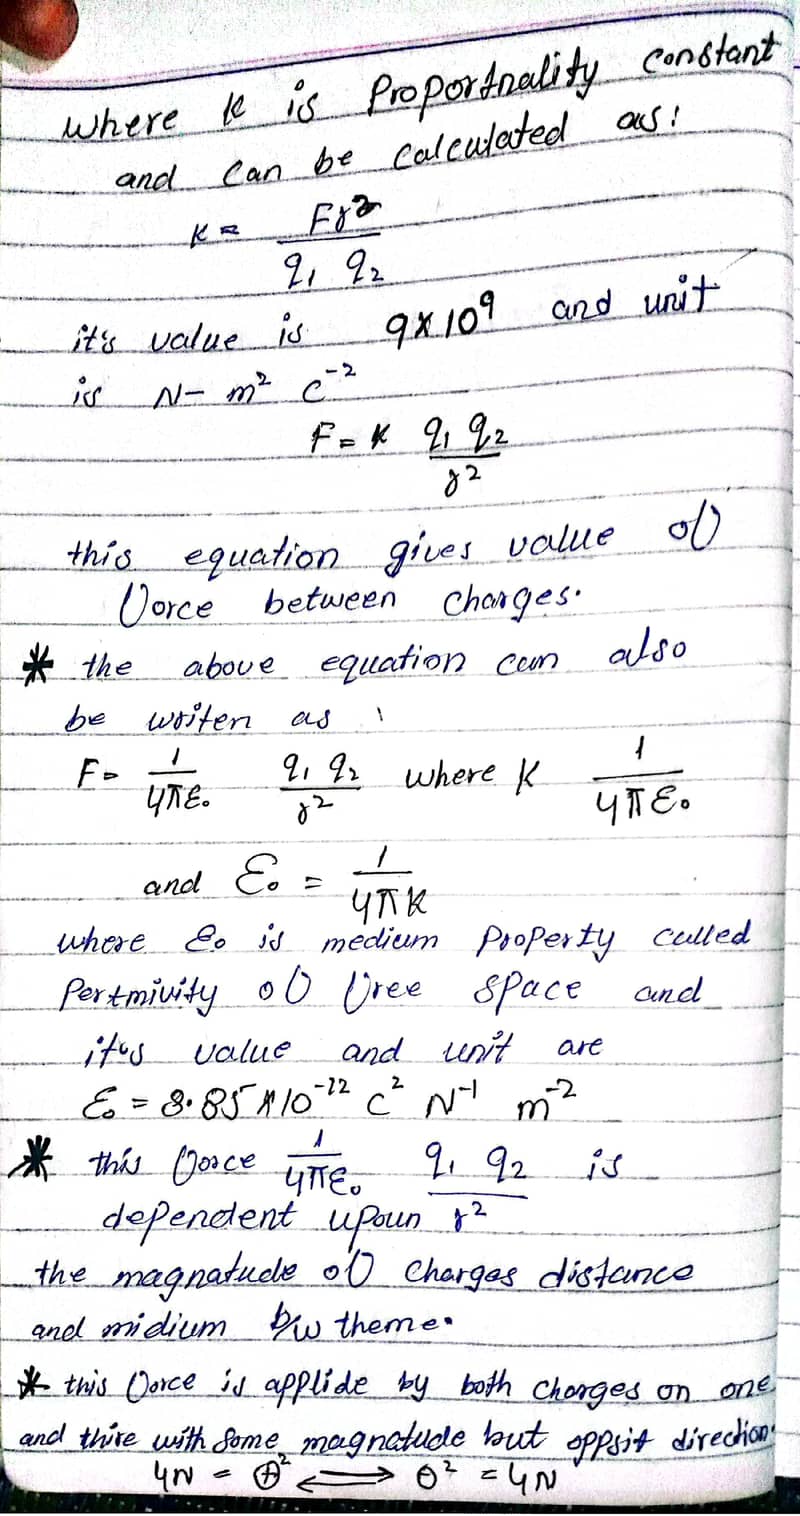 where k is Proportnality constant
and can be calculated as:
K = Fr²
q₁ q₂
it's value is 9×10⁹ and unit
is N- m² c⁻²
F = K q₁ q₂
r²
this equation gives value of
force between charges.
* the above equation can also
be writen as :
F = 1/4πε₀ q₁ q₂/r² where K 1/4πε₀
and ε₀ = 1/4πK
where ε₀ is medium Property called
Pertmivity of free space and
it's value and unit are
ε₀ = 8.85 × 10⁻¹² c² N⁻¹ m⁻²
* this force 1/4πε₀ q₁ q₂/r² is
dependent upoun
the magnatude of charges distance
and midium b/w theme.
* this force is applide by both charges on one
and thire with same magnatude but oppsit direction.
4N = ⊕² ⟺ ⊖² = 4N